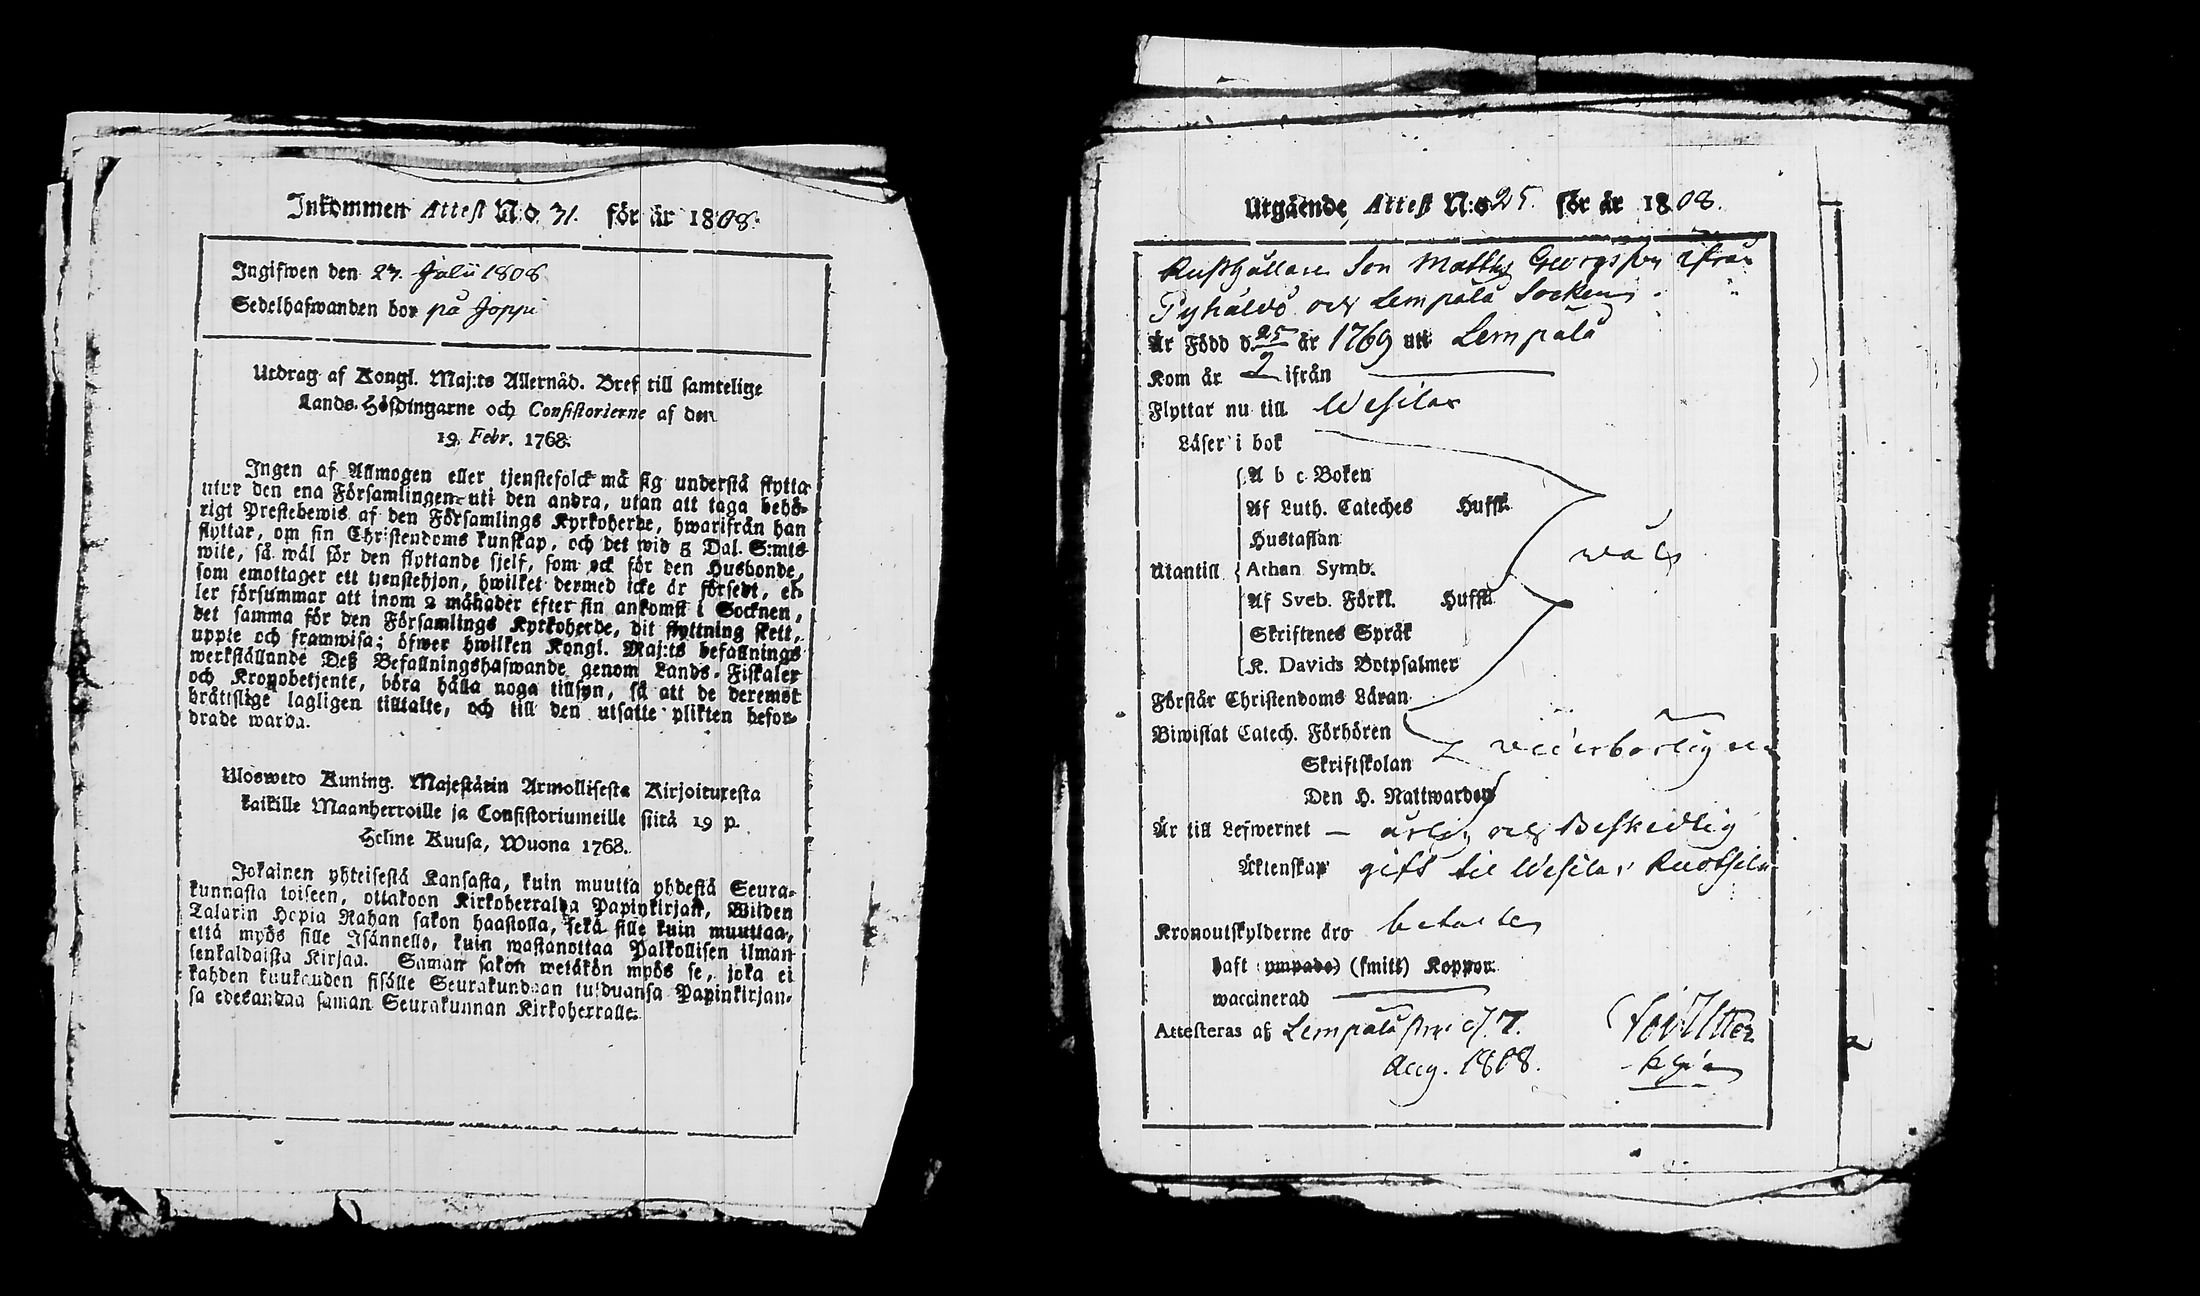 Inkommen Attest N:o 31. för år 1808.
Ingifwen den 27. Julii 1808
Sedelhafwanden bor på Joppi
Utdrag af Kongl. Maj:ts Allernåd. Bref till samtelige
Lands-Höfdingarne och Consistorierne af den
19. Febr. 1768.
Ingen af Allmogen eller tjenstefolck må sig understå flytta
utur den ena Församlingen uti den andra, utan att taga behö-
rigt Prestebewis af den Församlings Kyrkoherde, hwarifrån han
flyttar, om sin Christendoms kunskap, och det wid 5 Dal. S:mts
wite, så wäl för den flyttande sjelf, som ock för den Husbonde,
som emottager ett tjenstehjon, hwilket dermed icke är försedt, el-
ler försummar att inom 2 månader efter sin ankomst i Socknen,
det samma för den Församlings Kyrkoherde, dit flyttning skett,
uppte och framwisa; öfwer hwilken Kongl. Maj:ts befallnings
werkställande Deß Befallningshafwande genom Lands-Fiskaler
och Kronobetjente, böra hålla noga tillsyn, så att de deremot
bråttslige lagligen tilltalte, och till den utsatte plikten befor-
drade warda.
Ulosweto Kuning. Majestätin Armollisesta Kirjoituxesta
kaikille Maanherroille ja Consistoriumeille siitä 19 p.
Helme Kuusa, Wuona 1768.
Jokainen yhteisestä Kansasta, kuin muutta yhdestä Seura-
kunnasta toiseen, ottakoon Kirkoherralda Papinkirjan, Wiiden
Talarin Hopia Rahan sakon haastolla, sekä sille kuin muuttaa,
että myös sille Isännelle, kuin wastanottaa Palkollisen ilman
senkaldaista Kirjaa. Saman sakon wetäkön myös se, joka ei
kahden kuukauden sisälle Seurakundaan tulduansa Papinkirjan-
sa edesandaa saman Seurakunnan Kirkoherralle.
Utgående Attest N:o 25. för år 1808.
Rusthållare Son Matths Georgsson ifrån
Pyhäldö och Lempälä Socken
Är Född d. 25/9 år 1769 uti Lempälä
Kom år ifrån
Flyttar nu till Wesilax
Läser i bok
A b c Boken
Af Luth. Cateches Hufsst.
Hustaflan
Utantill Athan Symb.
wäl
Af Sveb. Förkl. Hufsst.
Skriftenes Språk
K. Davids Botpsalmer
Förstår Christendoms Läran
Biwistat Catech. Förhören
Skriftskolan
Den H. Nattwarden
Är till Lefwernet — ärlig och Beskedlig
Äktenskap gift til Wesilax
Kronoutskylderne äro betalte
haft (ympade) (smitt) Koppor
waccinerad
Attesteras af Lempälä d. 7.
Aug. 1808.